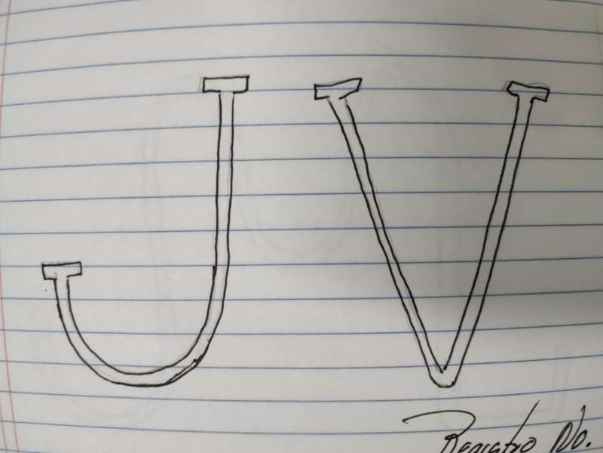 JV
Registro No.